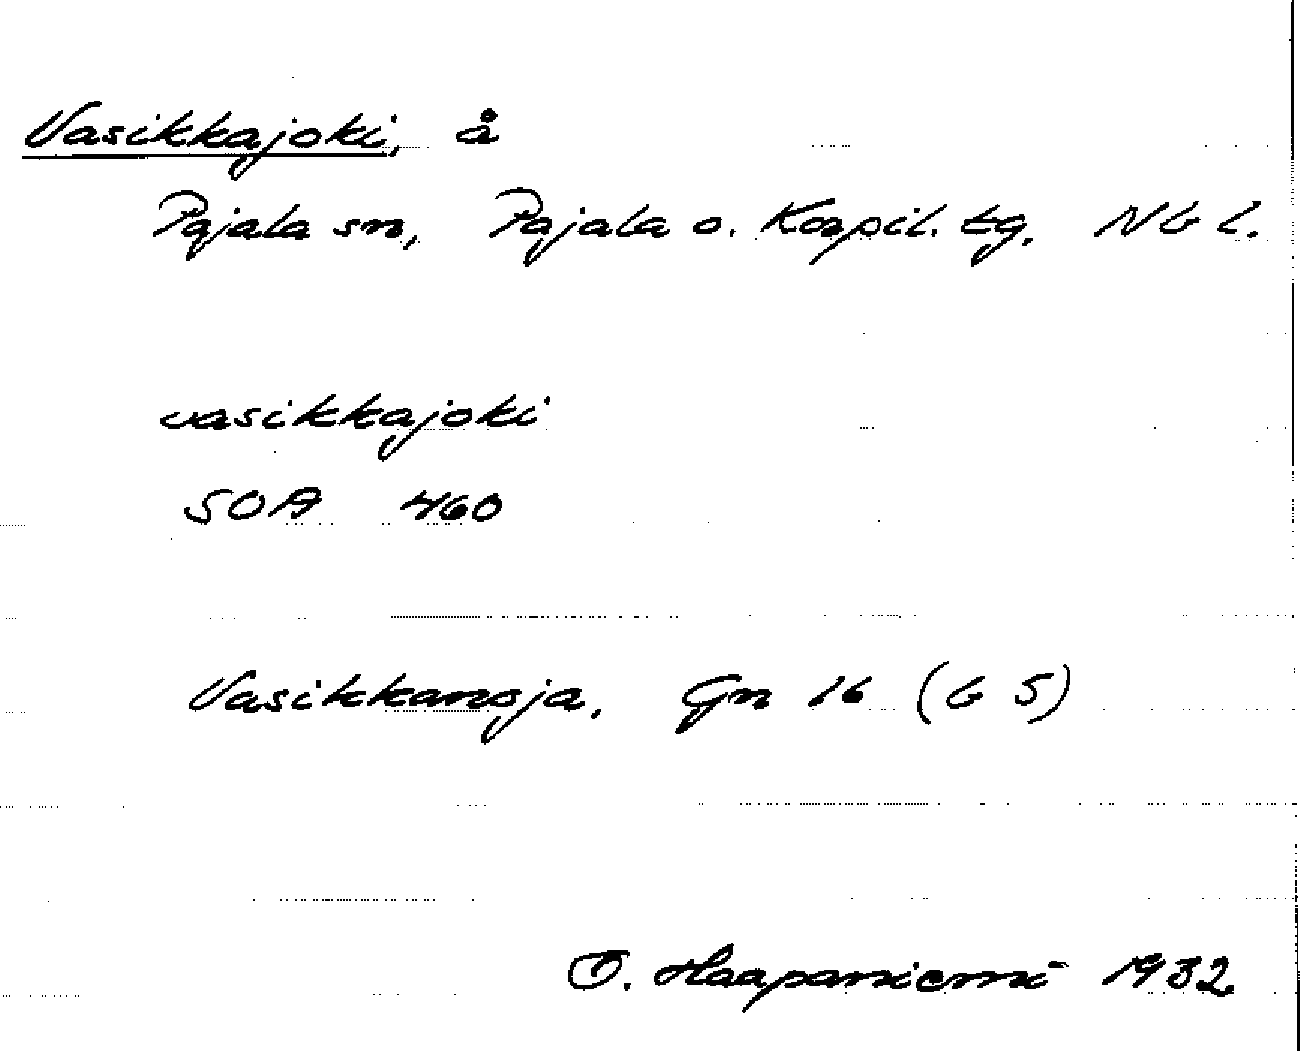 Vasikkajoki, å
Pajala sn, Pajala o. Korpil. tg. Nb l.
vasikkajoki
SOA 460
Vasikkanoja, Gn 16 (b 5)
O. Haapaniemi 1932